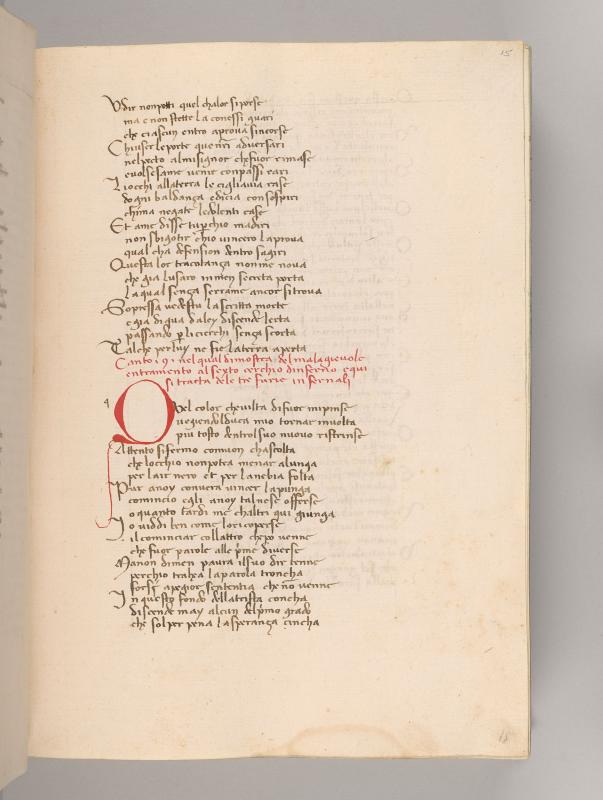 15
Udir non potti quel chalor si porse
ma e non stette la con essi guari
che ciascun entro aprova si corse
Chiuser le porte que nrī adversari
nel pecto al mi signor che fuor rimase
e volsesame venir con passi rari
L iocchi alla terra le ciglia avia rase
dogni baldança e dicia con sospiri
chi ma negate le dolenti case
Et ame disse tu perchio madiri
non sbigotir chio vincero la prova
qual cha defension dentro sagiri
Questa lor tracotança non ne nova
che gia lusaro in men secreta porta
la qual sença serrame ancor si trova
Sopressa vedestu la scritta morte
e gia di qua daley discende lerta
passando p li cerchi sença scorta
Tal che per luy ne fie la terra aperta
Canto .9. nel qual dimostra del malagievole
entramento al sexto cerchio dinferno e qui
si tracta dele tre furie infernali
q
Quel color che vilta di fuor mi pinse
vegiendo lduca mio tornar in volta
piu tosto dentro l suo nuovo ristrinse
Attento si fermo com uon chascolta
che locchio non potea menar a lunga
per lair nero et per la nebia folta
Pur a noy converra vincer la punga
comincio egli a noy tal ne se offerse
o quanto tarda me chaltri qui giunga
Io viddi ben come lori coperse
il cominciar collaltro che po venne
che fuor parole alle pme diverse
Ma non dimen paura il suo dir denne
perchio trahea la parola troncha
forse a pegior sententia che nō venne
In questo fondo della trista concha
discende may alcun del pmo grado
che sol per pena la sperança cincha